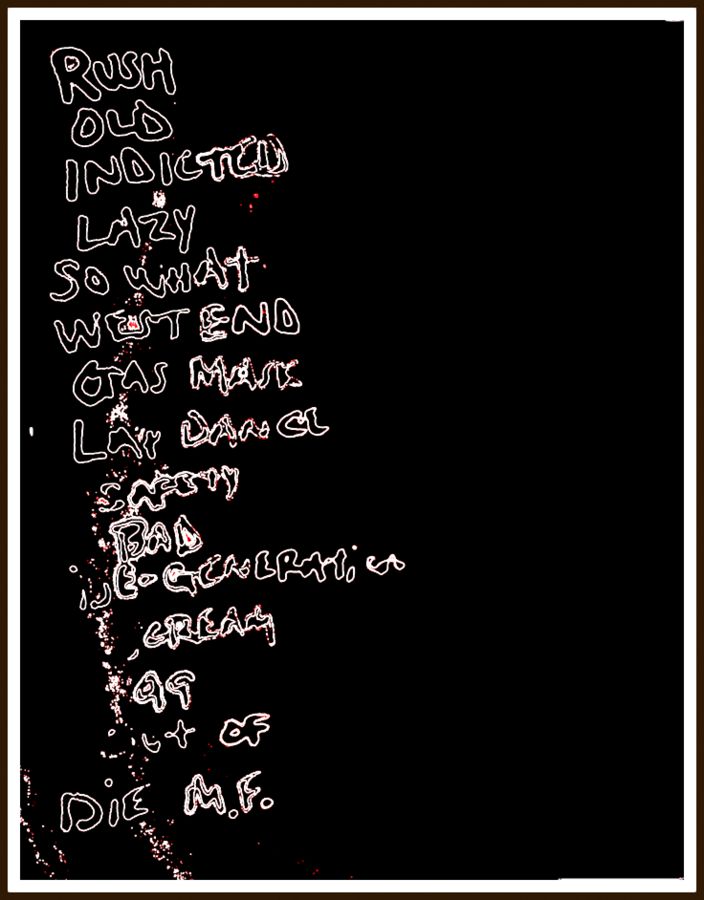 RUSH
OLD
INDICTED
LAZY
SO WHAT
WEST END
GAS MASK
LAP DANCE
SAFETY
BAD
DE-GENERATION
CREAM
99
OF
DIE M.F.